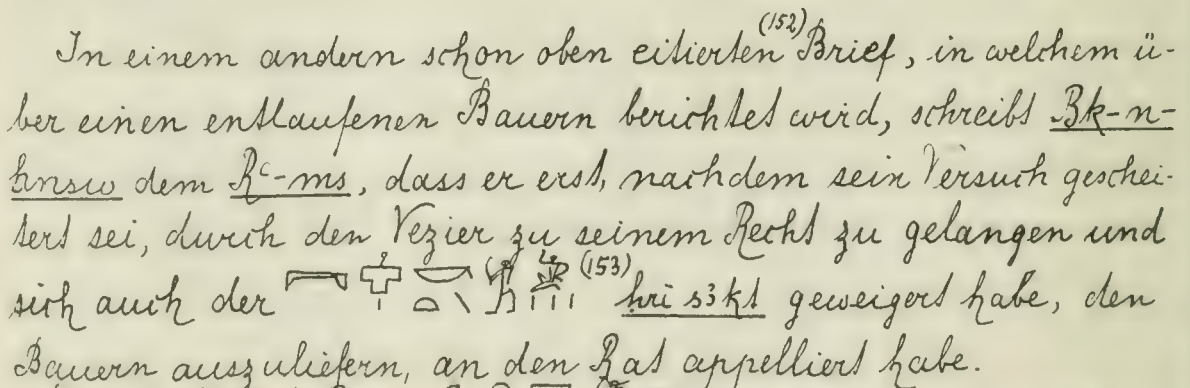 In einem andern schon oben citierten (152) Brief, in welchem ü-
ber einen entlaufenen Bauern berichtet wird, schreibt Bk-n-
ḫnsw dem Rꜥ-ms, dass er erst, nachdem sein Versuch geschei-
tert sei, durch den Vezier zu seinem Recht zu gelangen und
sich auch der (153) geweigert habe, den
Bauern auszuliefern, an den Rat appelliert habe.